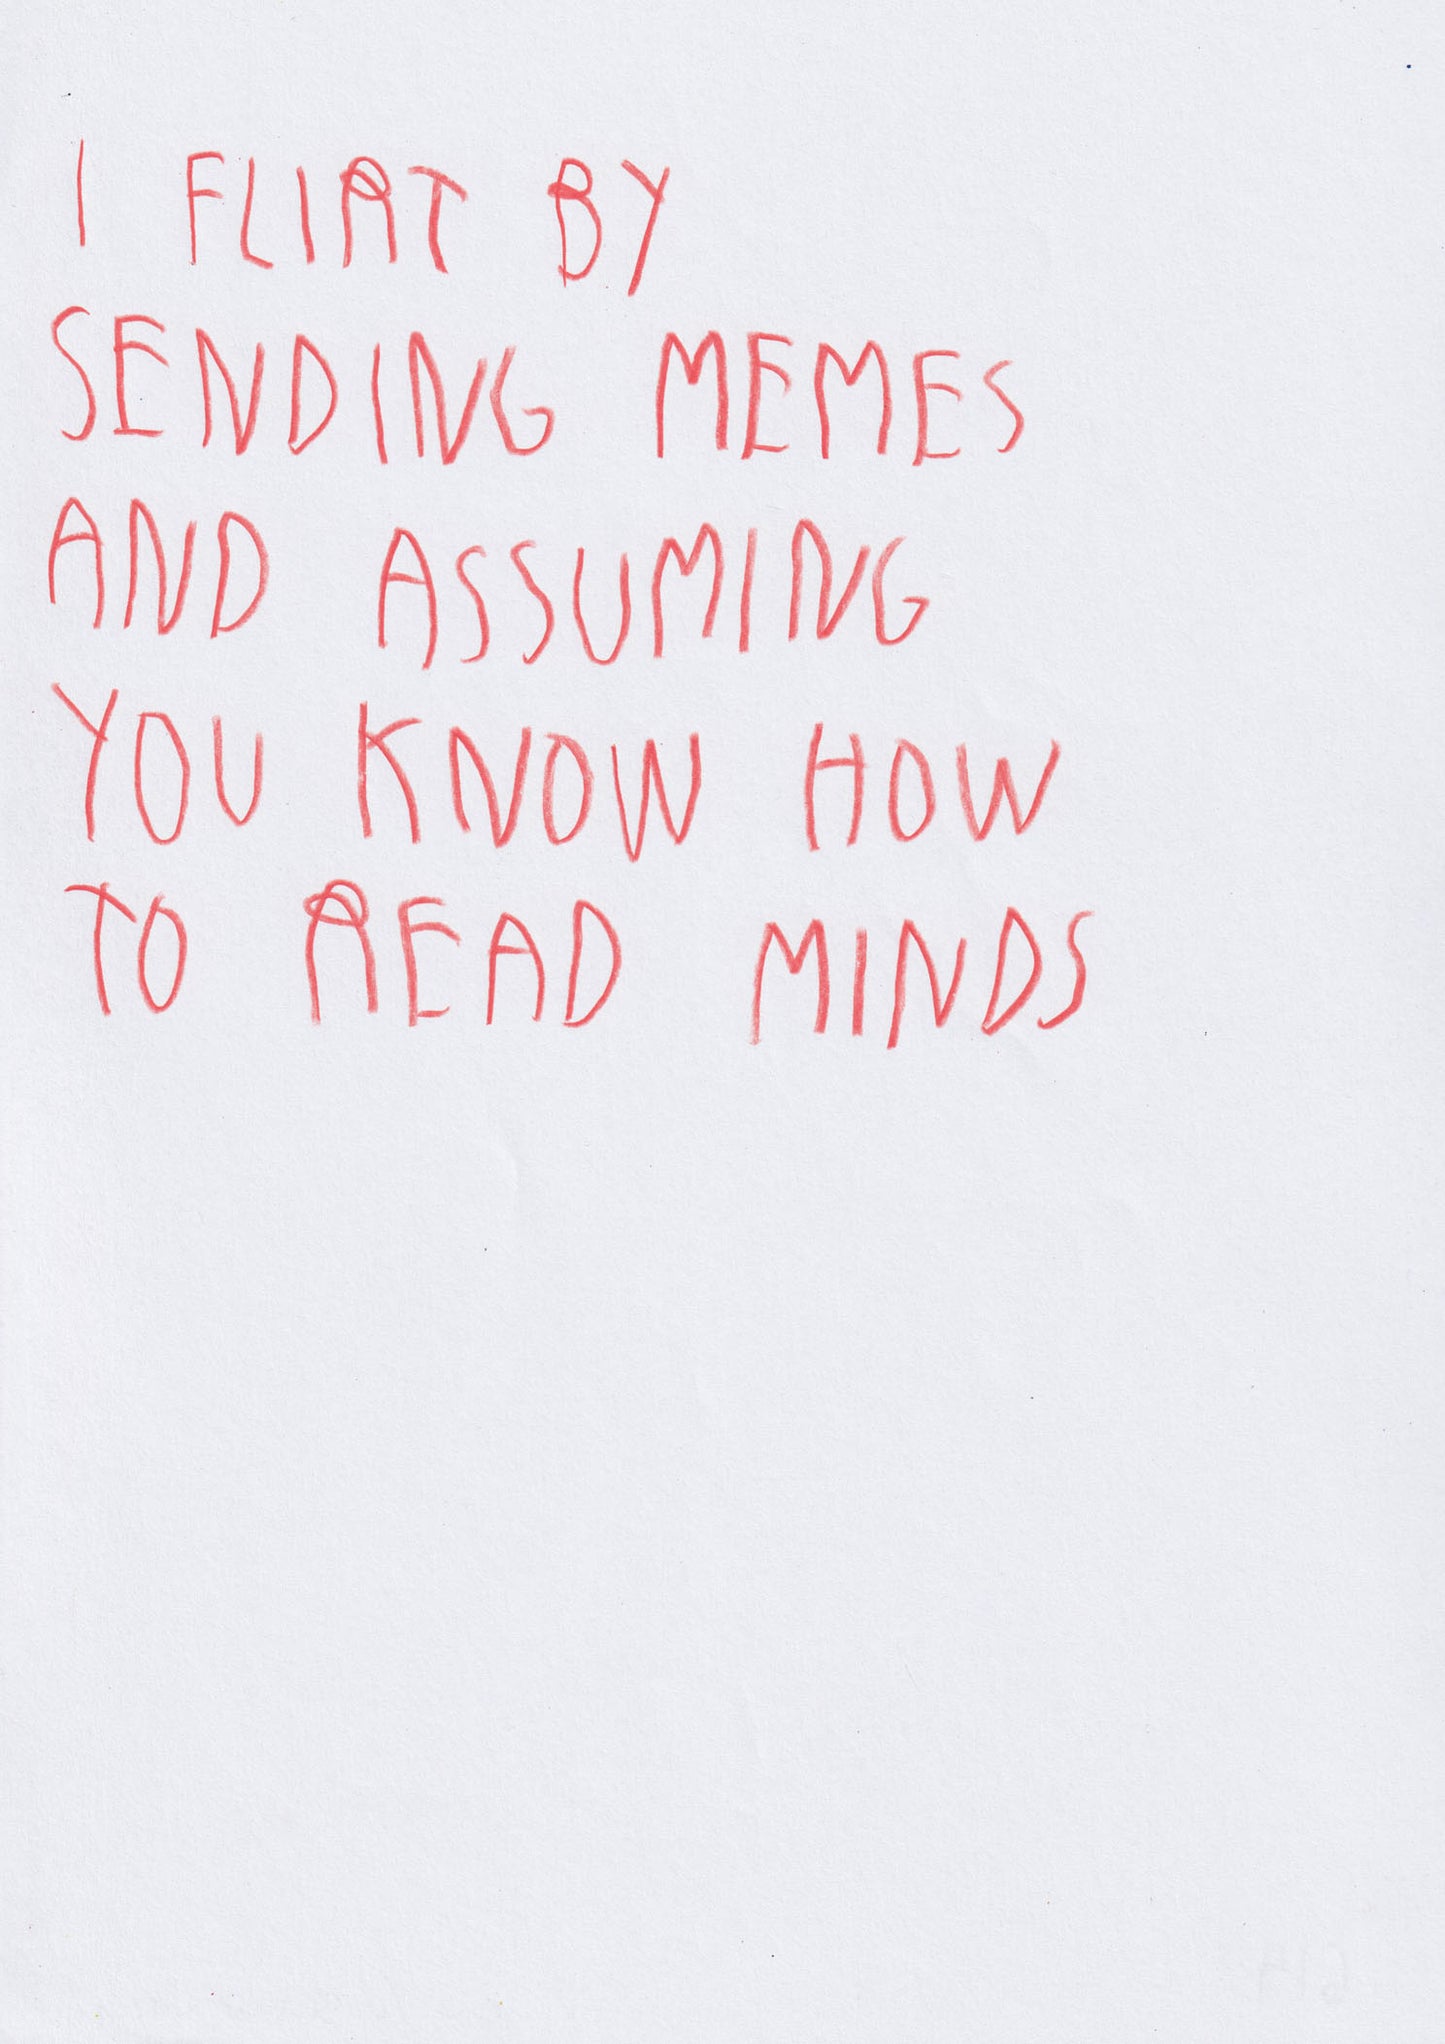 I FLIRT BY
SENDING MEMES
AND ASSUMING
YOU KNOW HOW
TO READ MINDS